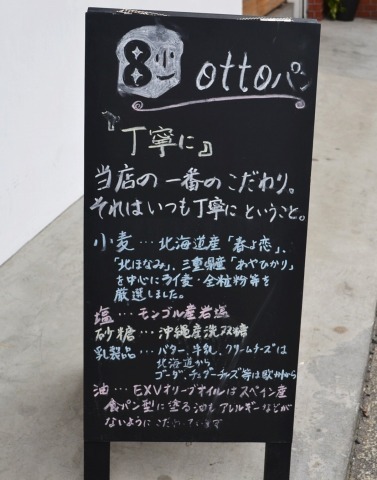 8
ottoパン
『丁寧に』
当店の一番のこだわり。
それはいつも丁寧にということ。
小麦…北海道産「春よ恋」、
「北ほなみ」、三重県産「あやひかり」
を中心にライ麦・全粒粉等を
厳選しました。
塩…モンゴル産岩塩
砂糖…沖縄産洗双糖
乳製品…バター、牛乳、クリームチーズは
北海道から
ゴーダ、チェダーチーズ等は欧州から
油…EXVオリーブオイルはスペイン産
食パン型に塗る油もアレルギーなどが
ないように こだわっています